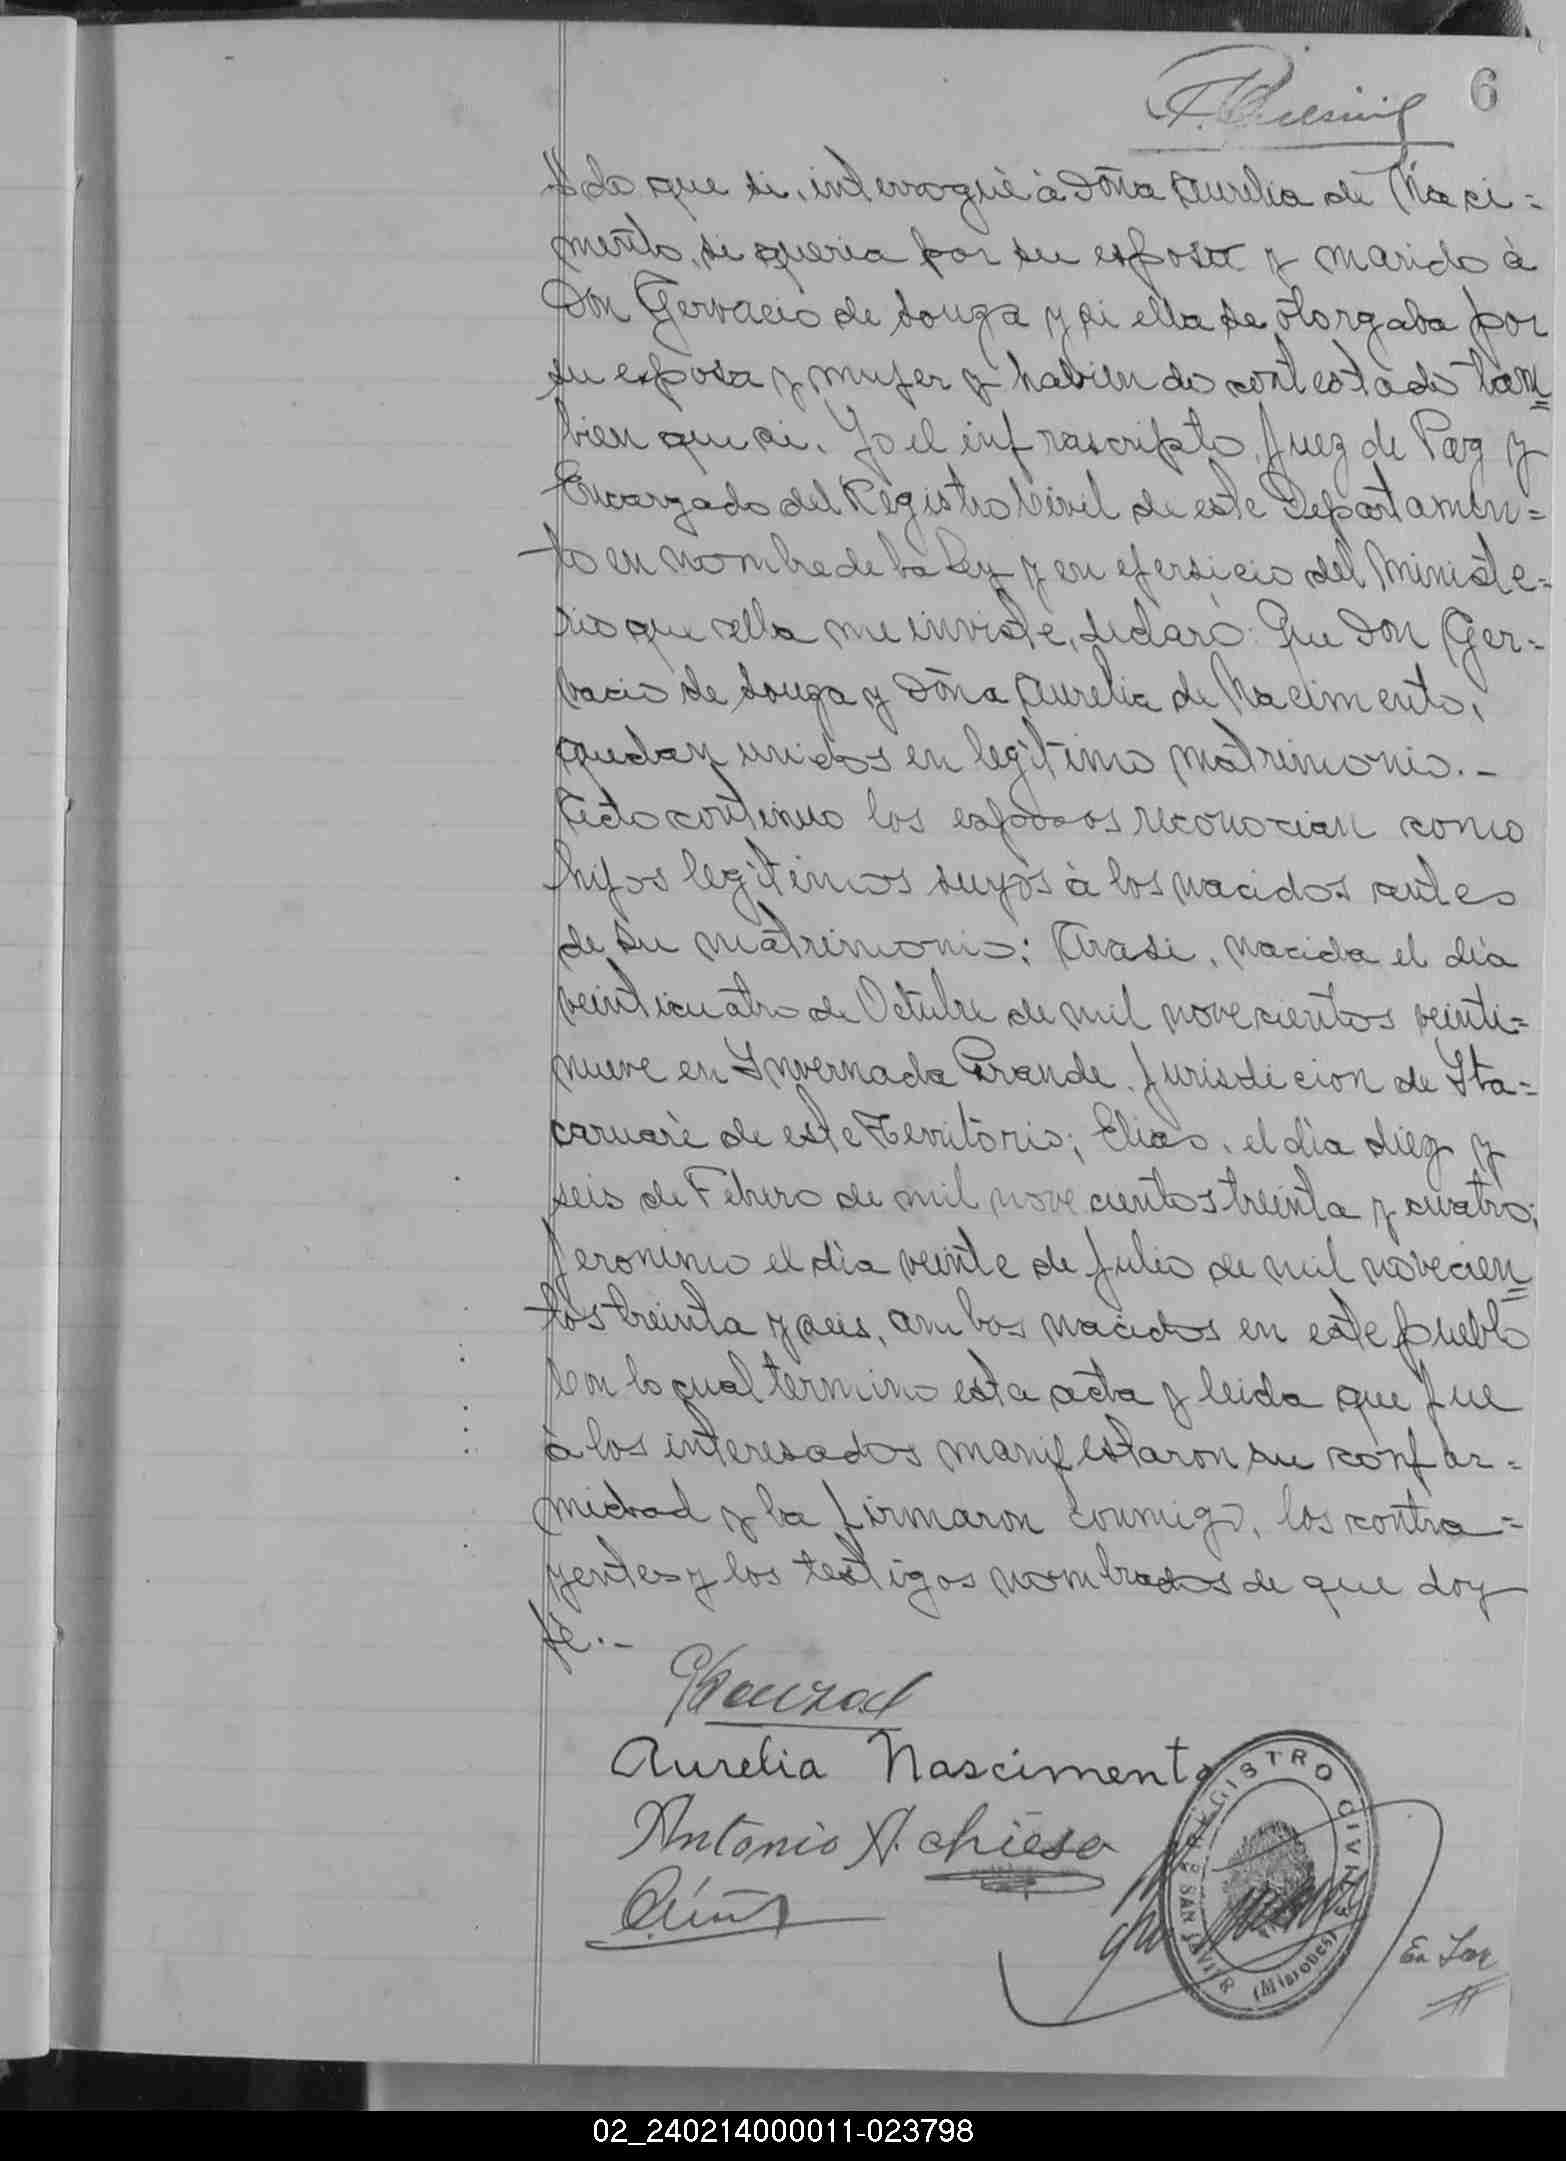 6
do que si, interrogué à Doña Aurelia de Naci=
mento, si queria por su esposo y marido à
Don Gervacio de Souza y si ella se otorgaba por
su esposa y mujer y habiendo contestado tam=
bien que si. Yo el infrascripto, Juez de Paz y
Encargado del Registro Civil de este Departamen=
to en nombre de la Ley y en ejersicio del Ministe=
rio que ella me inviste, declaro: Que Don Ger=
vacio de Souza y Doña Aurelia de Nacimento,
quedan unidos en legitimo matrimonio.-
Acto continuo los esposos reconocian como
hijos legitimos suyos à los nacidos antes
de su matrimonio: Arasi, nacida el dia
veinticuatro de Octubre de mil novecientos veinti=
nueve en Invernada Grande, Jurisdicion de Ita=
caruaré de este Territorio; Elias, el dia diez y
seis de Febrero de mil novecientos treinta y cuatro;
Jeronimo el dia veinte de Julio de mil novecien=
tos treinta y seis, ambos nacidos en este pueblo
Con lo cual termino esta acta y leida que fue
à los interesados manifestaron su confor=
midad y la firmaron conmigo, los contra=
yentes y los testigos nombrados de que doy
fé.-
Aurelia Nascimento
Antonio A. Chiesa
REGISTRO CIVIL
SAN JAVIER
(Misiones)